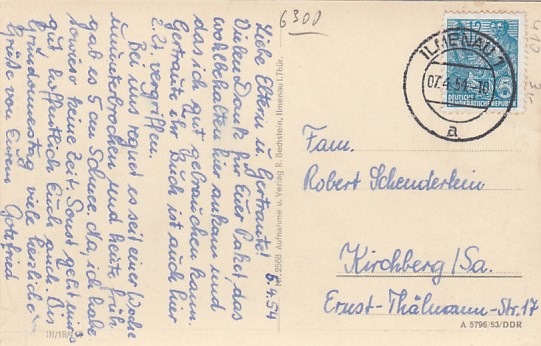 6.4.54
Liebe Eltern u. Gertraute!
Vielen Dank für Euer Paket, das
wohlbehalten hier ankam und
das ich gut gebrauchen kann.
Gertraute ihr Buch ist auch hier
z.Zt. vergriffen.
Bei uns regnet es seit einer Woche
ununterbrochen und heute früh
gab es 5 cm Schnee. Na, ich habe
sowieso keine Zeit. Sonst geht's mir
gut, hoffentlich Euch auch. Bis
Gründonnerstag viele herzliche
Grüße von Eurem Gottfried
III/18/
Nr. 2568 Aufnahme u. Verlag R. Bechstein, Ilmenau i. Thür.
6300
ILMENAU 1
07.4.54
a
DEUTSCHE
DEMOKRATISCHE REPUBLIK
5
Fam.
Robert Schenderlein
Kirchberg/Sa.
Ernst-Thälmann-Str. 17
A 5796/53/DDR